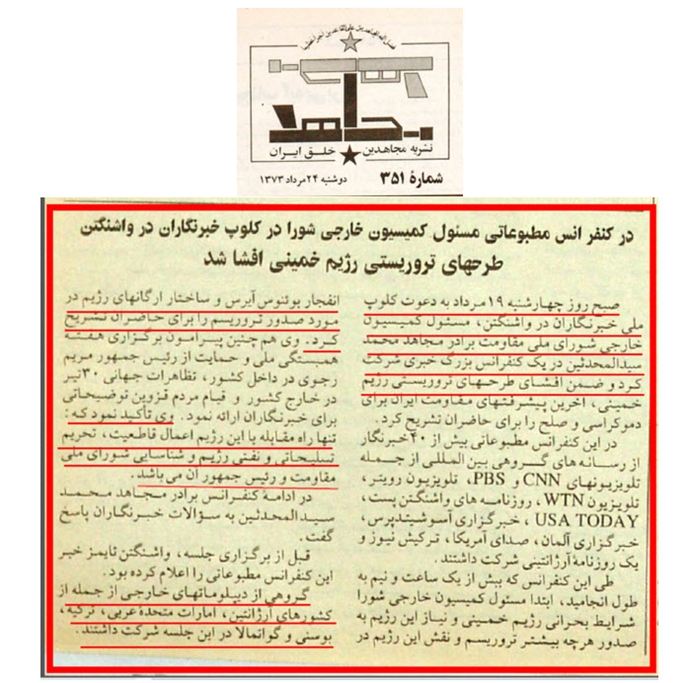 مجاهد
نشریه مجاهدین خلق ایران
شمارهٔ ۳۵۱
دوشنبه ۲۴ مرداد ۱۳۷۳
در کنفرانس مطبوعاتی مسئول کمیسیون خارجی شورا در کلوپ خبرنگاران در واشنگتن
طرحهای تروریستی رژیم خمینی افشا شد
صبح روز چهارشنبه ۱۹ مرداد به دعوت کلوپ
ملی خبرنگاران در واشنگتن، مسئول کمیسیون
خارجی شورای ملی مقاومت برادر مجاهد محمد
سیدالمحدثین در یک کنفرانس بزرگ خبری شرکت
کرد و ضمن افشای طرحهای تروریستی رژیم
خمینی، آخرین پیشرفتهای مقاومت ایران برای
دموکراسی و صلح را برای حاضران تشریح کرد.
در این کنفرانس مطبوعاتی بیش از ۴۰ خبرنگار
از رسانه‌های گروهی بین‌المللی از جمله
تلویزیونهای CNN و PBS، تلویزیون رویتر،
تلویزیون WTN، روزنامه‌های واشنگتن پست،
USA TODAY، خبرگزاری آسوشیتدپرس،
خبرگزاری آلمان، صدای آمریکا، ترکیش نیوز و
یک روزنامهٔ آرژانتینی شرکت داشتند.
طی این کنفرانس که بیش از یک ساعت و نیم به
طول انجامید، ابتدا مسئول کمیسیون خارجی شورا
شرایط بحرانی رژیم خمینی و نیاز این رژیم به
صدور هرچه بیشتر تروریسم و نقش این رژیم در
انفجار بوئنوس آیرس و ساختار ارگانهای رژیم در
مورد صدور تروریسم را برای حاضران تشریح
کرد. وی هم چنین پیرامون برگزاری هفتهٔ
همبستگی ملی و حمایت از رئیس جمهور مریم
رجوی در داخل کشور، تظاهرات جهانی ۳۰ تیر
در خارج کشور و قیام مردم قزوین توضیحاتی
برای خبرنگاران ارائه نمود. وی تأکید نمود که:
تنها راه مقابله با این رژیم اعمال قاطعیت، تحریم
تسلیحاتی و نفتی رژیم و شناسایی شورای ملی
مقاومت و رئیس جمهور آن می‌باشد.
در ادامهٔ کنفرانس برادر مجاهد محمد
سیدالمحدثین به سؤالات خبرنگاران پاسخ
گفت.
قبل از برگزاری جلسه، واشنگتن تایمز خبر
این کنفرانس مطبوعاتی را اعلام کرده بود.
گروهی از دیپلوماتهای خارجی از جمله از
کشورهای آرژانتین، امارات متحدهٔ عربی، ترکیه،
بوسنی و گواتمالا در این جلسه شرکت داشتند.